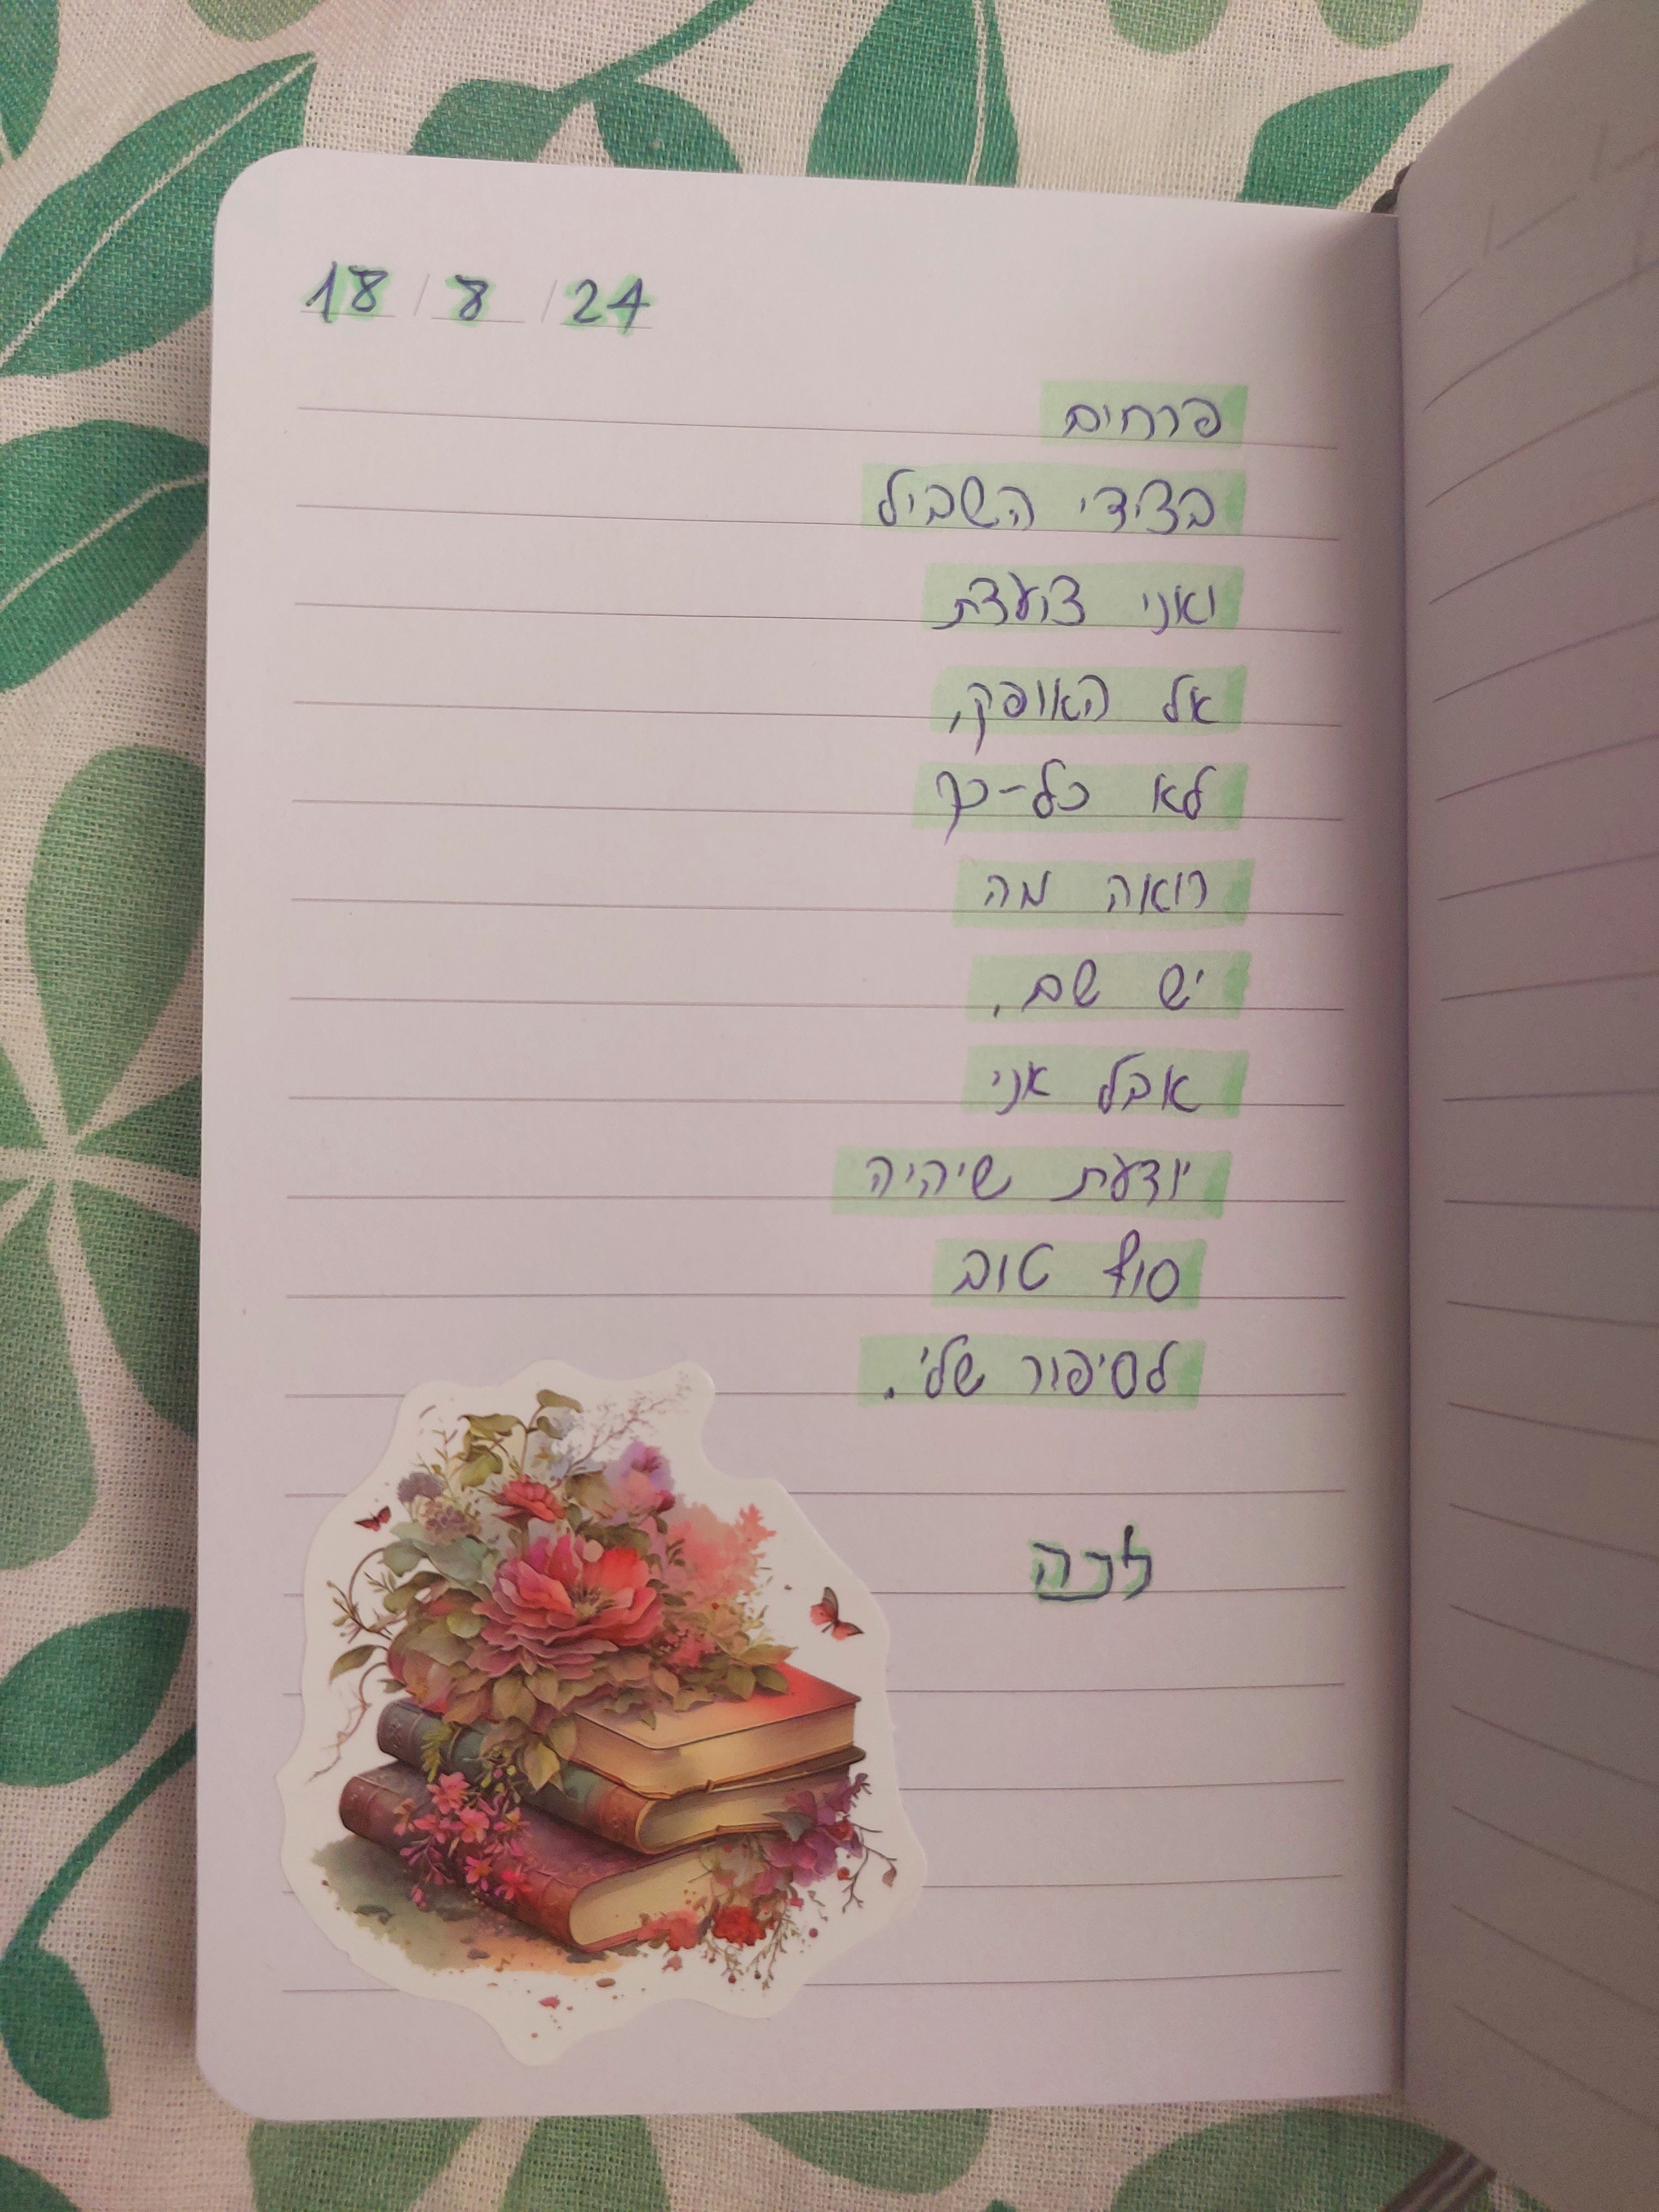 18/8/24
פרחים
בצידי השביל
ואני צועדת
אל האופק,
לא כל-כך
רואה מה
יש שם,
אבל אני
יודעת שיהיה
סוף טוב
לסיפור שלי.